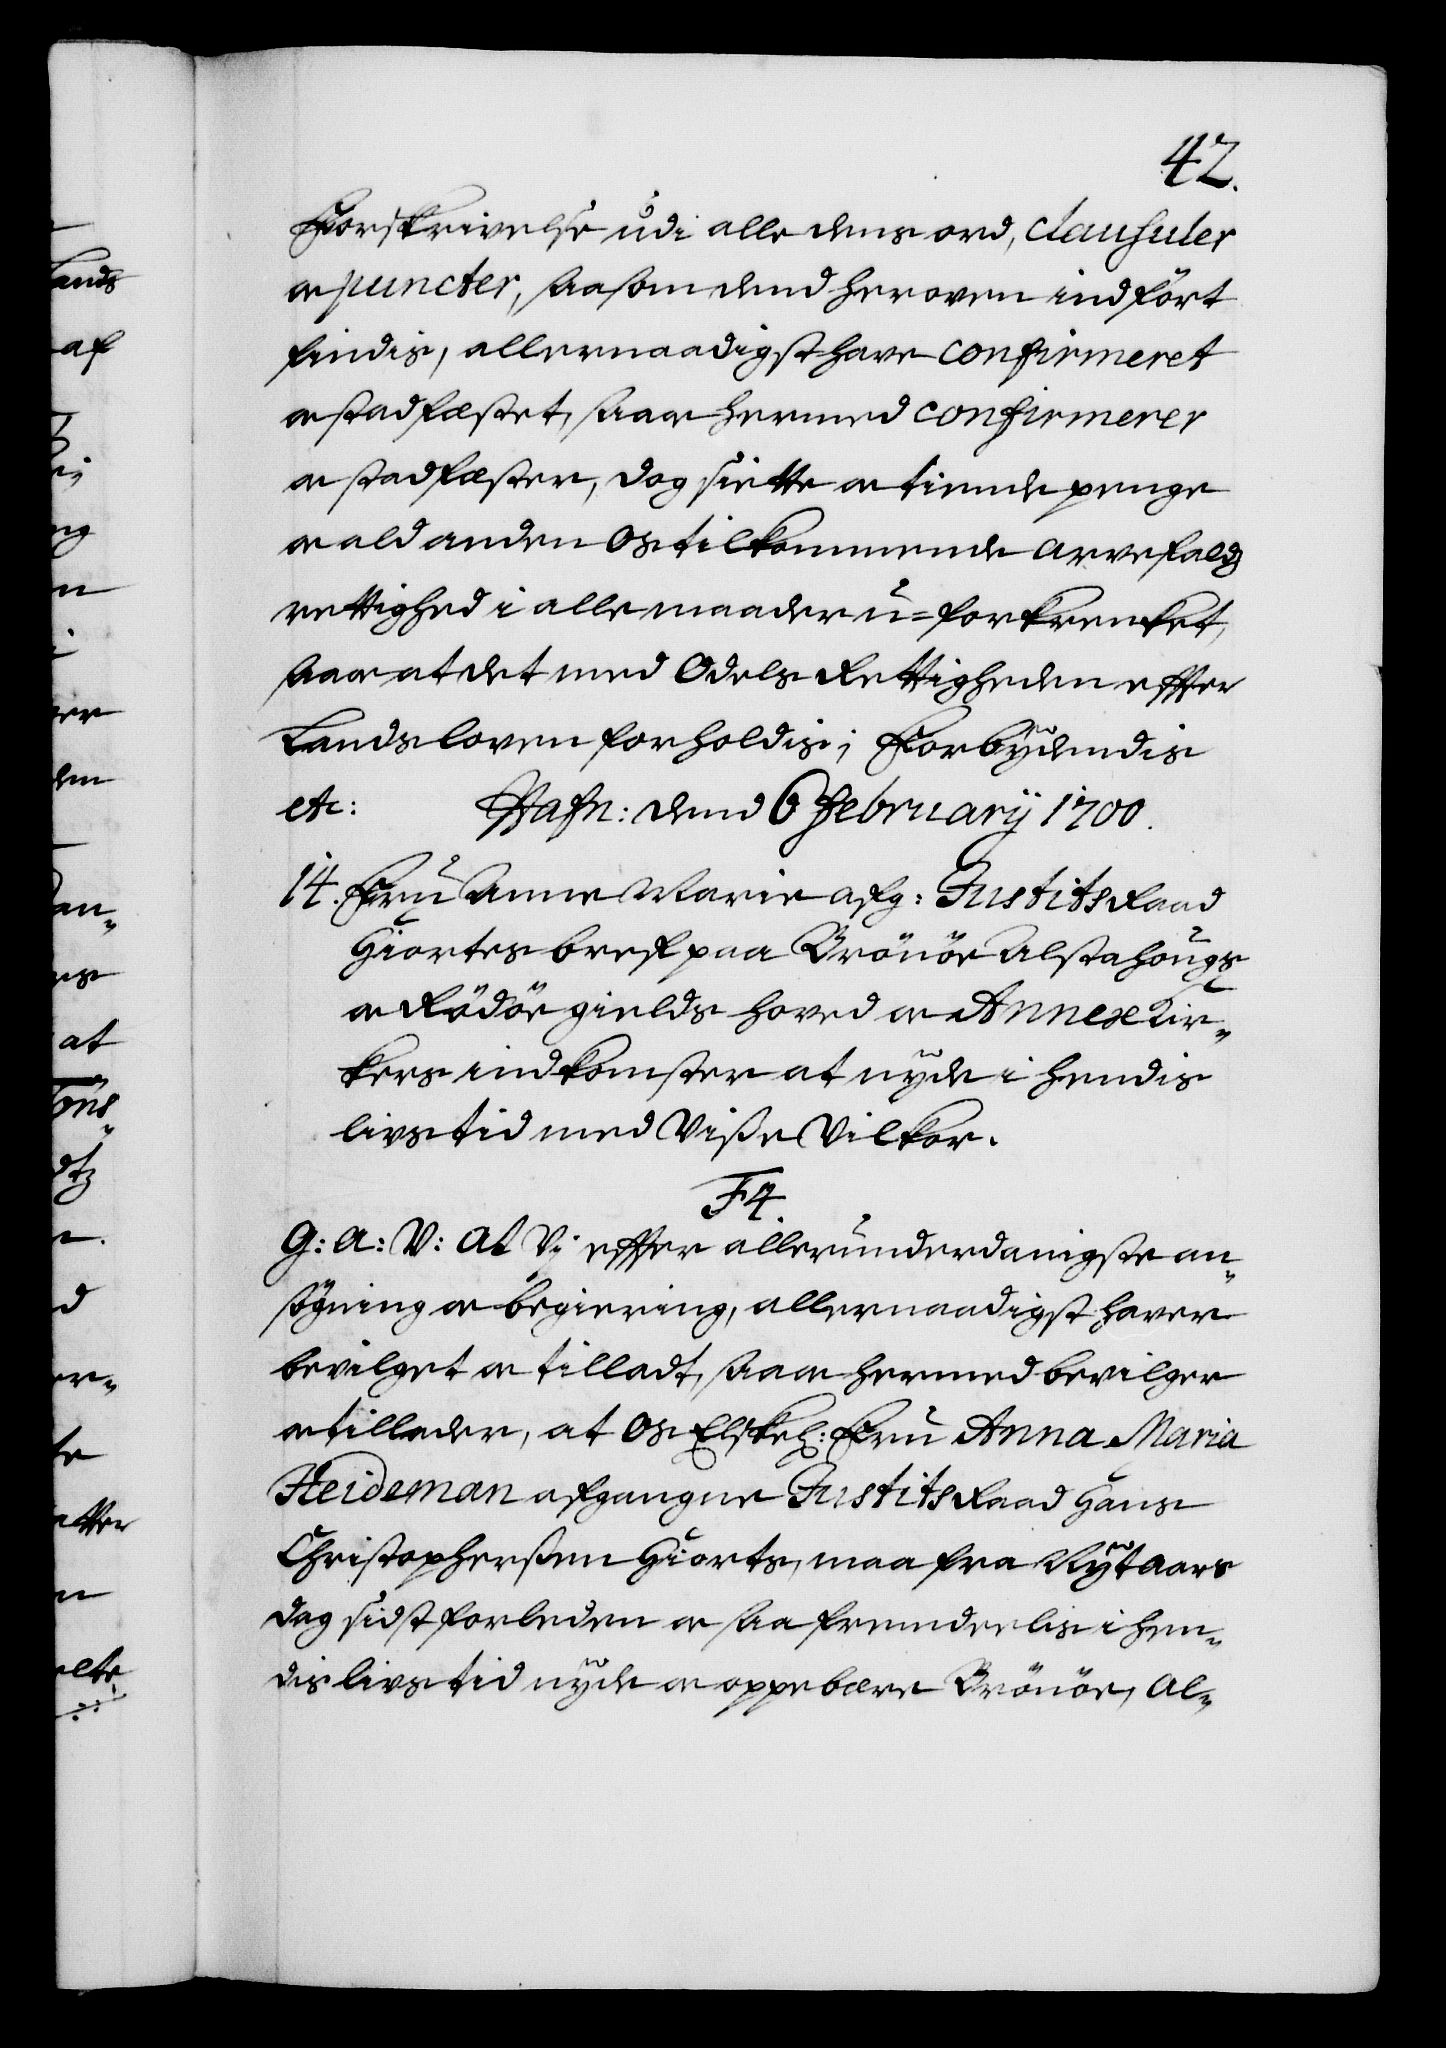 42.
Forskrivelse udi alle dens ord, clausuler
og puncter, saasom dend heroven indfört
findis, allernaadigst have confirmeret
og stadfæstet, saa og hermed confirmerer
og stadfæster, dog siette og tiende penge
og ald anden Os tilkommende arvefalds
rettighed i alle maader u=forkrenket,
saa og at det med Odels Rettigheden effter
Landsloven forholdis; Forbydendis
etc: Hafn: dend 6 February 1700.
14. Fru Anne Marie afg: Justits Raad
Hiortes bref paa Brönöe Alstahougs
og Rödöe gields hoved og Annex Kir„
kers indkomster at nyde i hendis
livstid med Visse Vilkor.
F4.
G: A: V: At Vi effter allerunderdanigste an„
sögning og begiering, allernaadigst haver
bevilget og tilladt, saa og hermed bevilger
og tillader, at Os Elskel: Fru Anna Maria
Heideman afgangne Justits Raad Hans
Christophersen Hiorts, maa fra Nyt aars
dag sidst forleden og saa fremdeelis i hen„
dis livstid nyde og oppebære Brönöe, Al„
ands
af
ng
er
dem
an„
at
öns„
dtz
d
er„
te
etter
elte